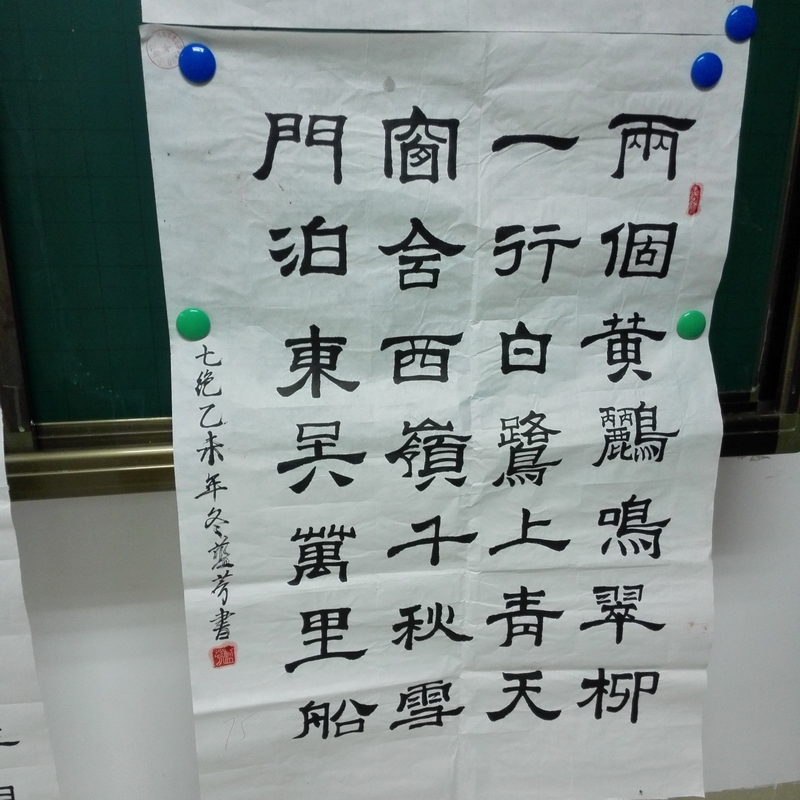 兩個黄鸝鳴翠柳
一行白鷺上青天
窗含西嶺千秋雪
門泊東吴萬里船
七绝乙未年冬蓝芳書